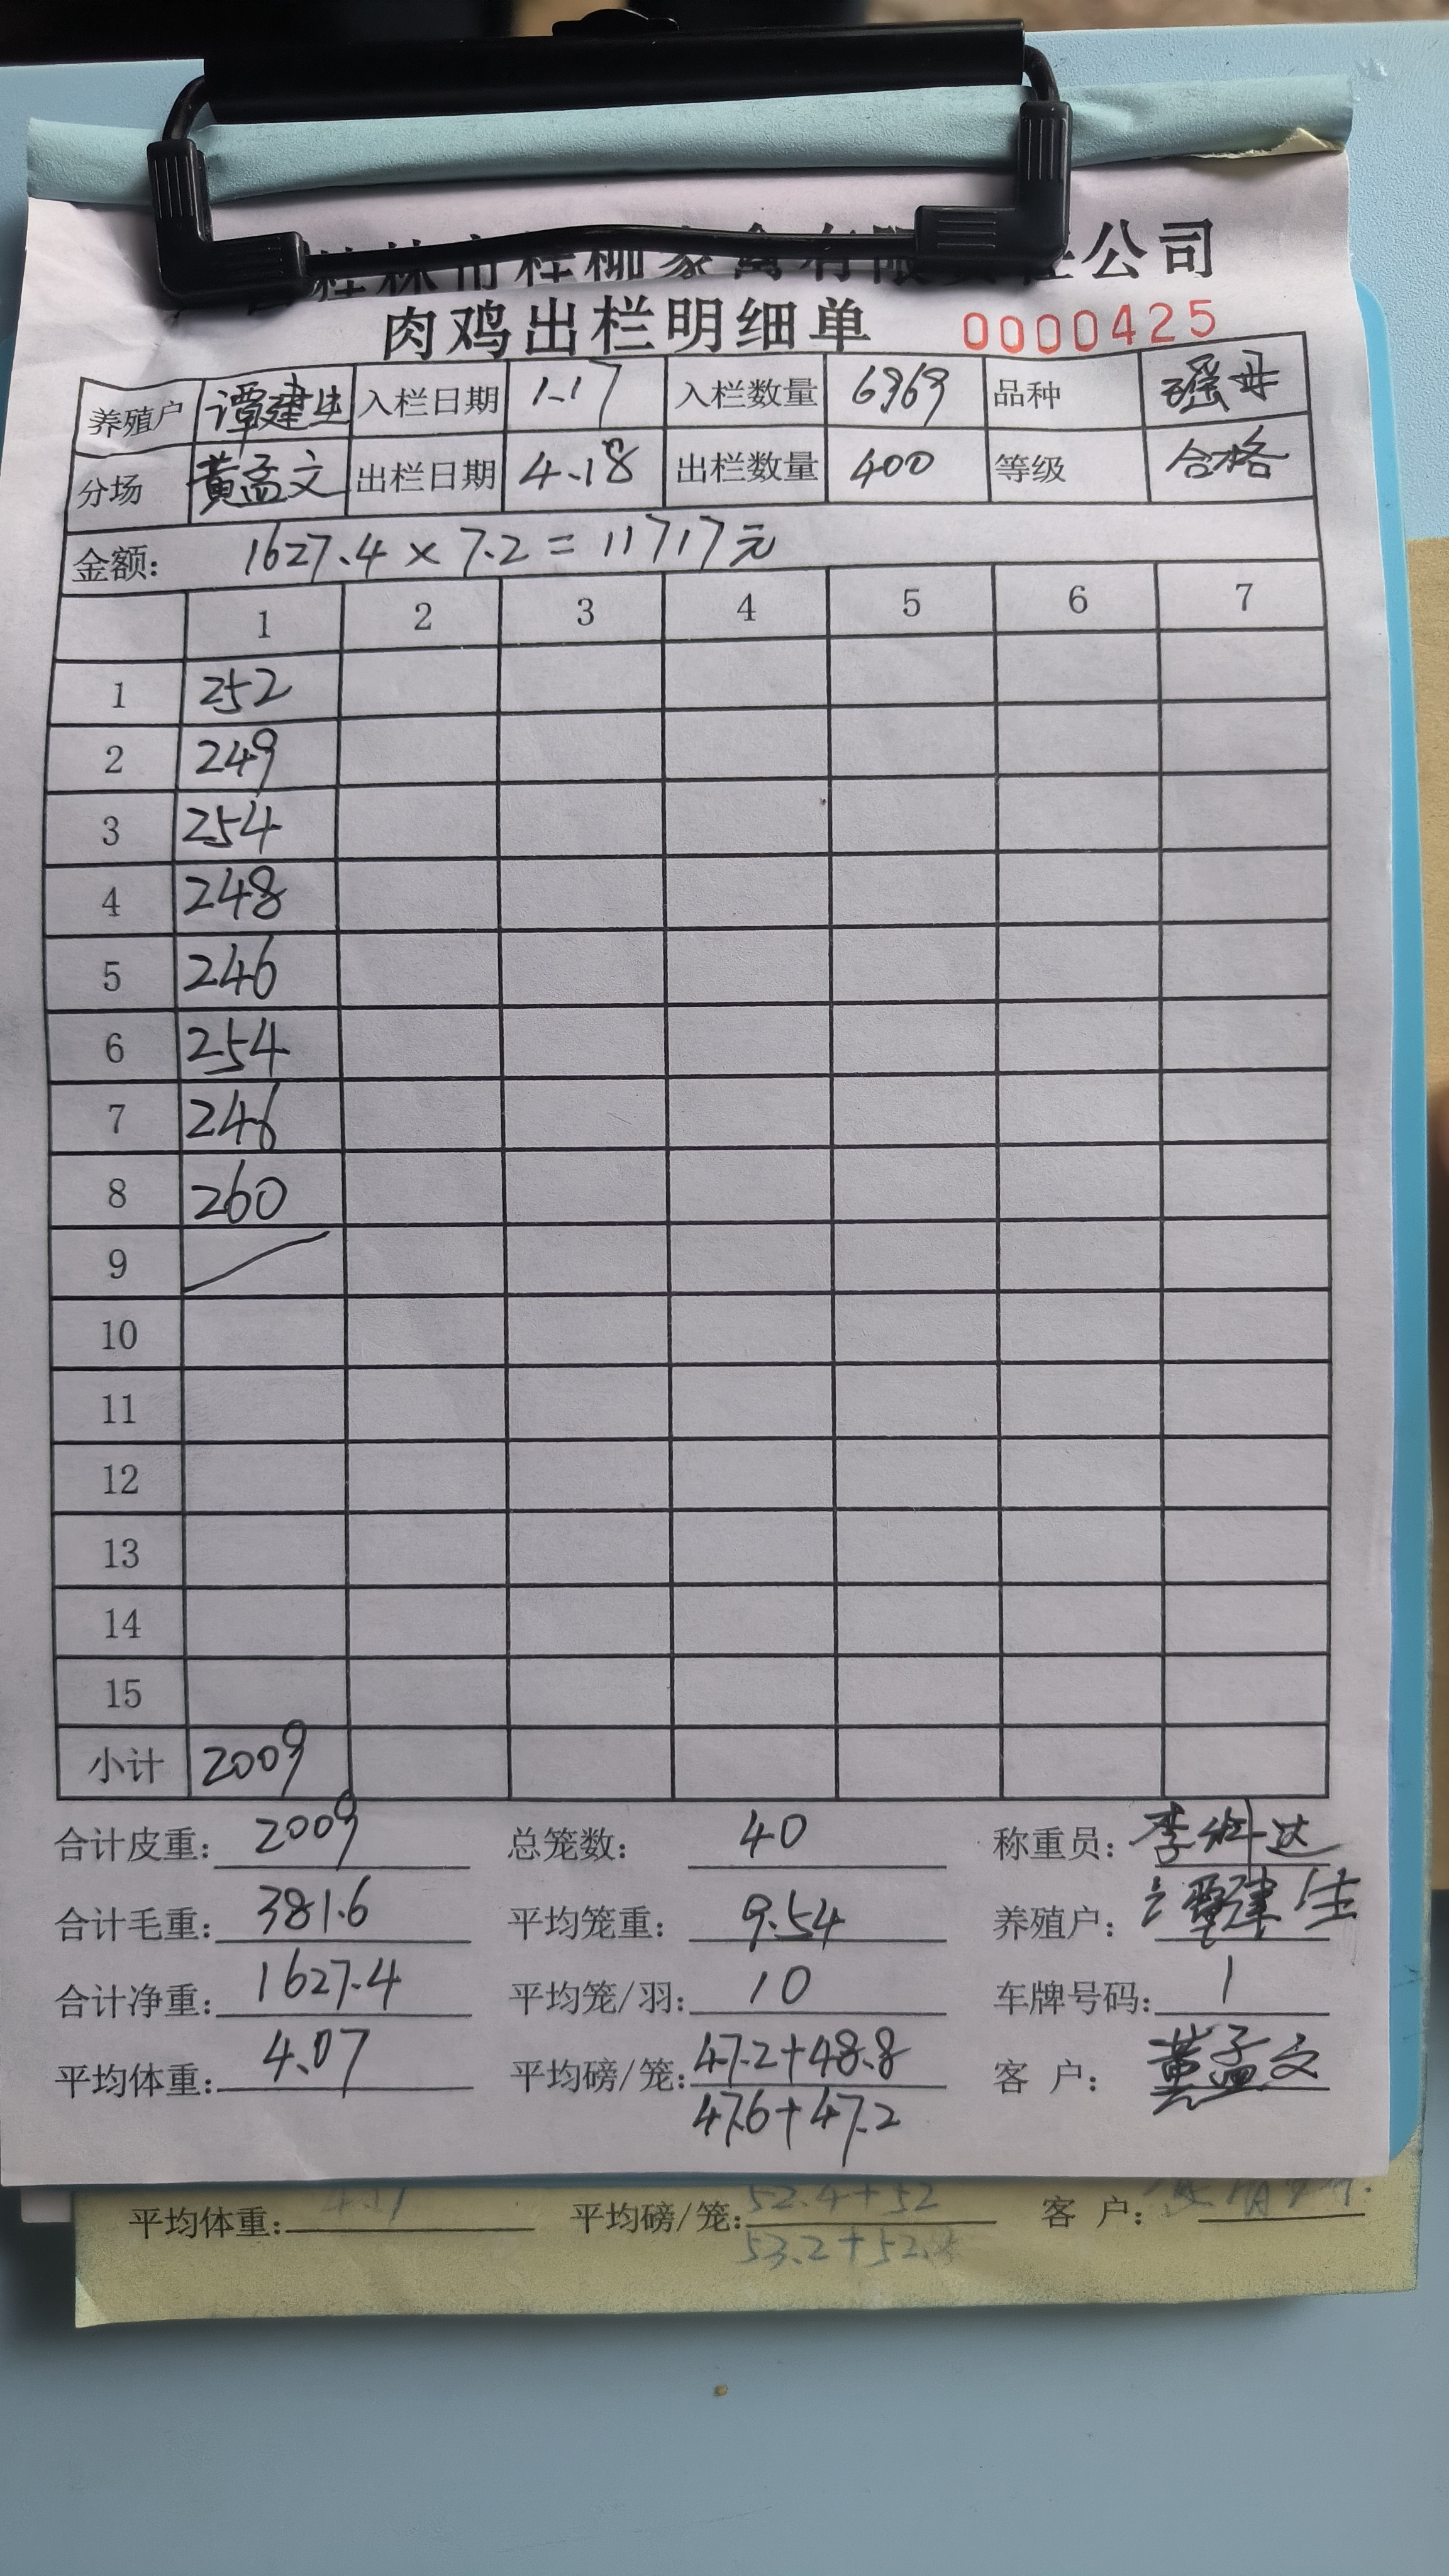 桂林市桂柳家禽有限责任公司
肉鸡出栏明细单 0000425
养殖户 谭建生 入栏日期 1.17 入栏数量 6969 品种 瑶母
分场 黄孟文 出栏日期 4.18 出栏数量 400 等级 合格
金额: 1627.4 × 7.2 = 11717元
1 2 3 4 5 6 7
1 252
2 249
3 254
4 248
5 246
6 254
7 246
8 260
9
10
11
12
13
14
15
小计 2009
合计皮重: 2009 总笼数: 40 称重员: 李 达
合计毛重: 381.6 平均笼重: 9.54 养殖户: 谭建生
合计净重: 1627.4 平均笼/羽: 10 车牌号码: 1
平均体重: 4.07 平均磅/笼: 47.2+48.8 客 户: 黄孟文
47.6+47.2
平均体重: 平均磅/笼: 52.4+52 客 户:
53.2+52.